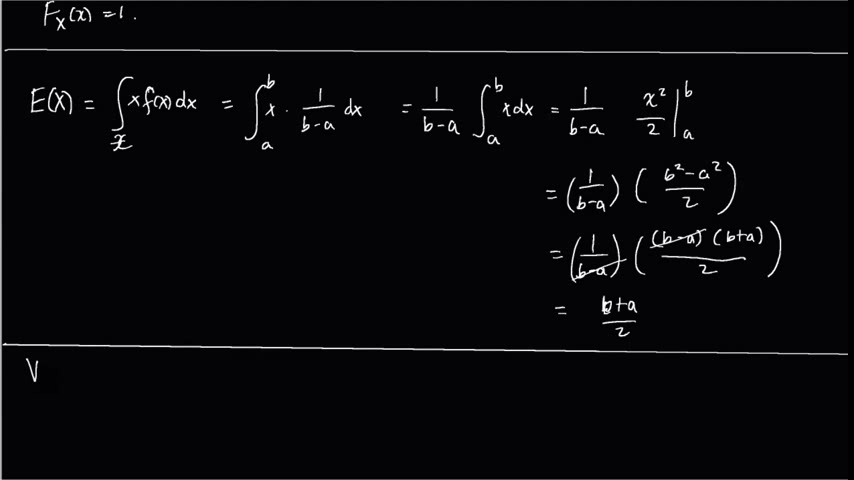 F_X(x) = 1.
E(X) = ∫_𝒳 x f(x) dx = ∫_a^b x · 1/(b-a) dx = 1/(b-a) ∫_a^b x dx = 1/(b-a) x²/2 |_a^b
= (1/(b-a)) ((b²-a²)/2)
= (1/(b-a)) ((b-a)(b+a)/2)
= (b+a)/2
V